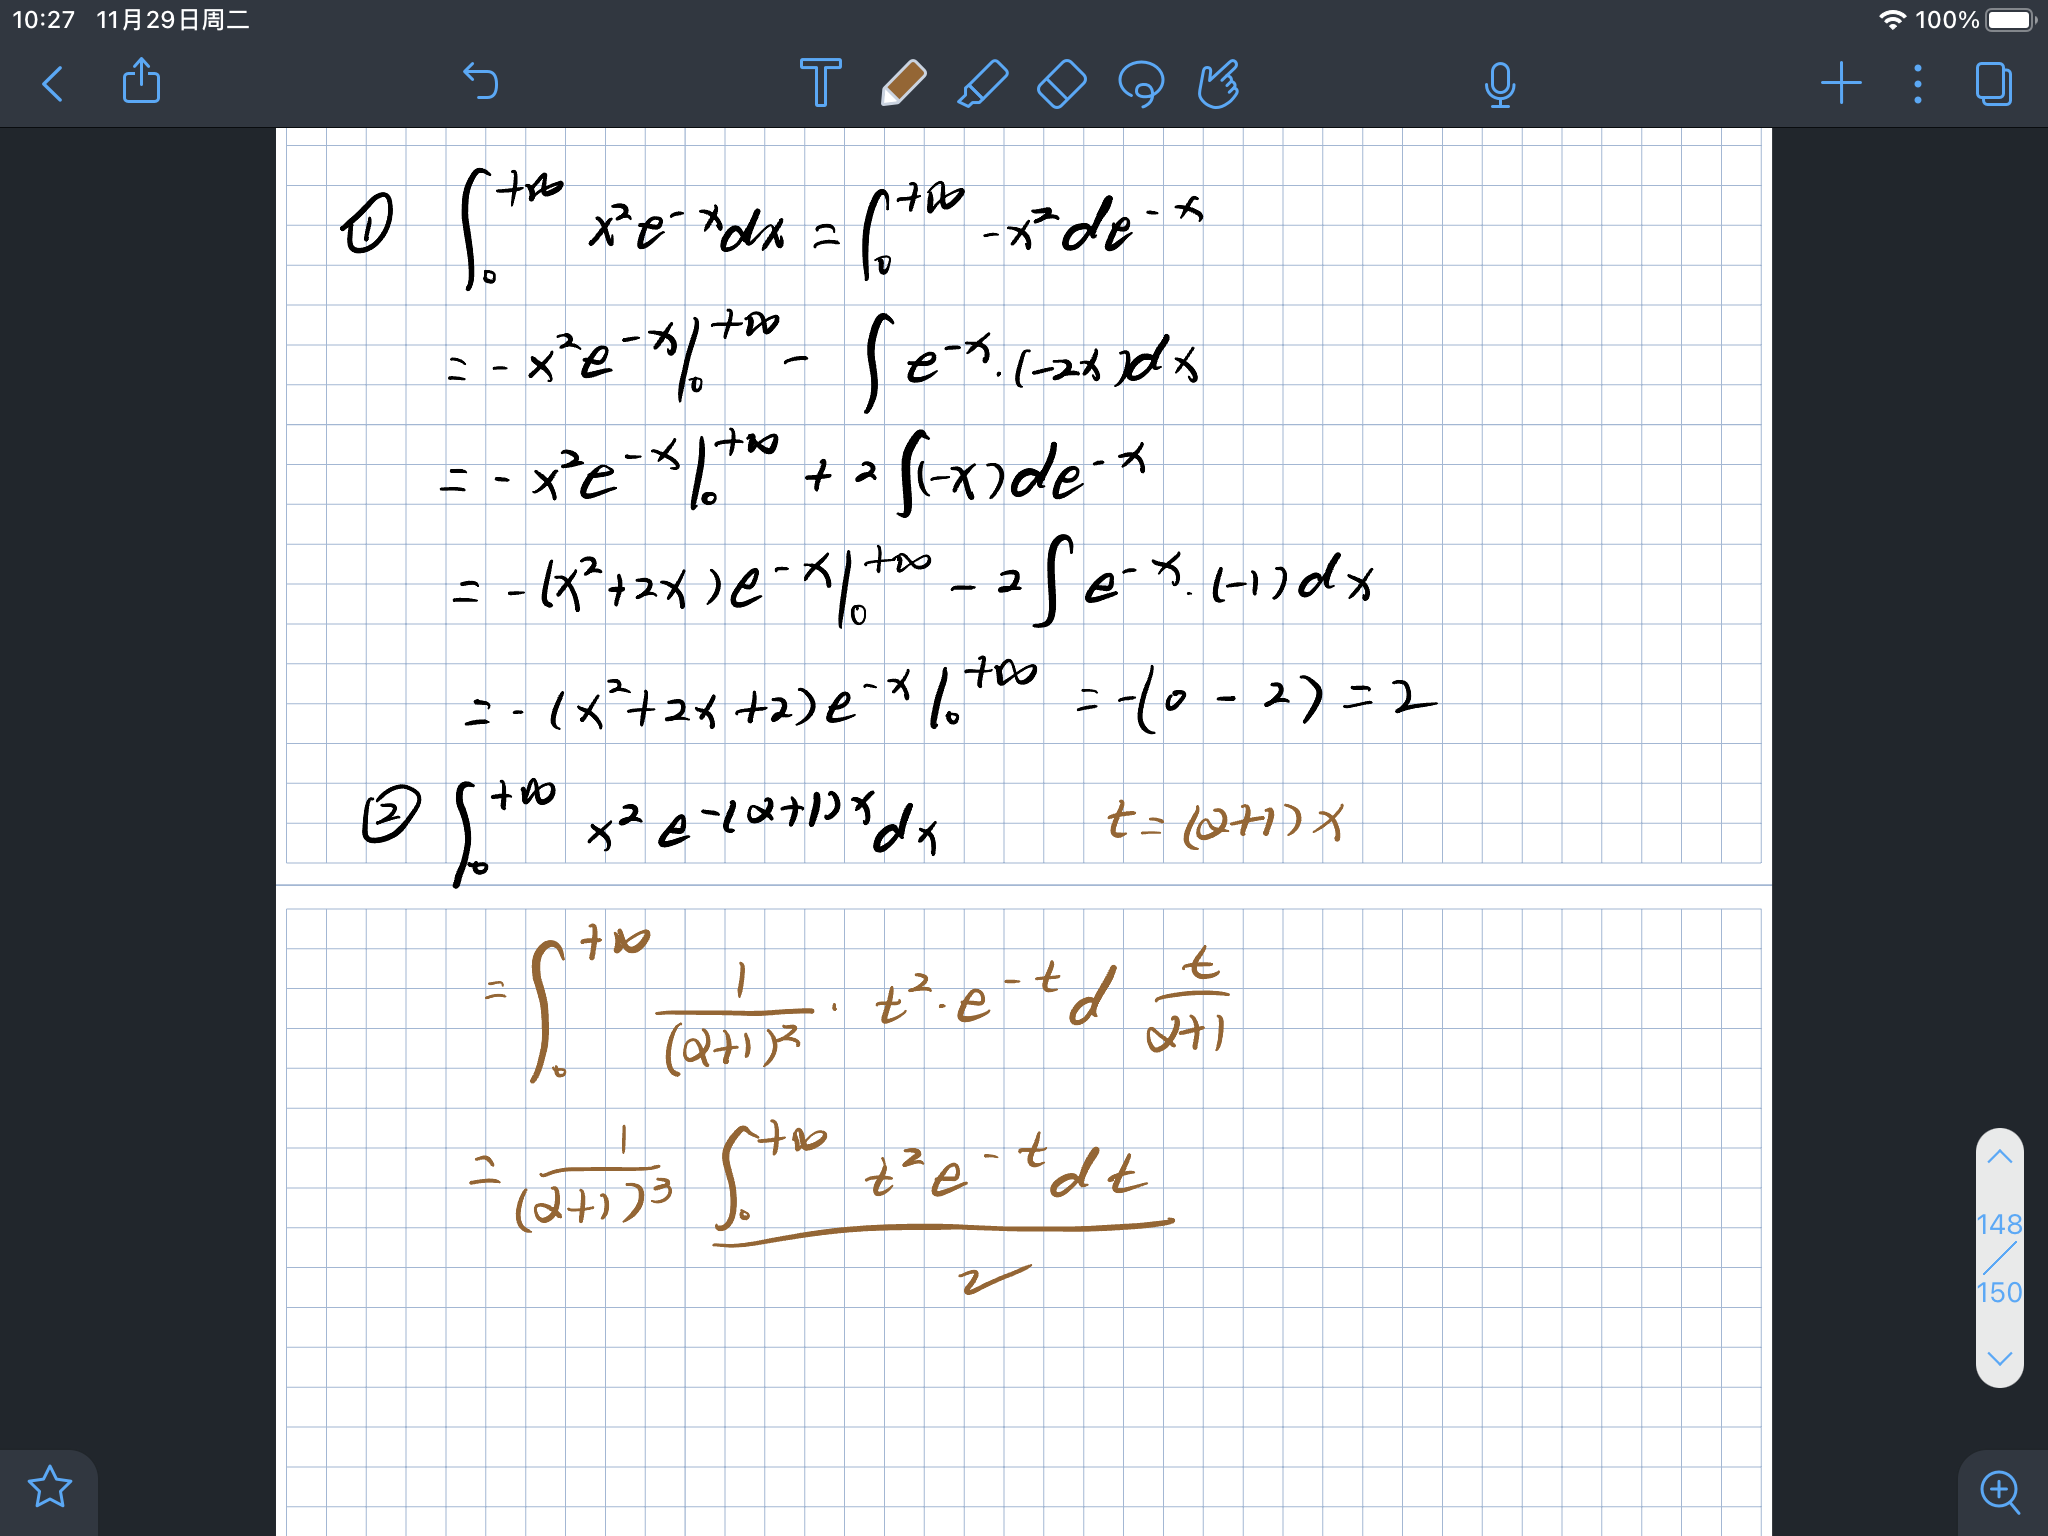 10:27 11月29日周二 100%
① ∫₀^{+∞} x²e^{-x}dx = ∫₀^{+∞} -x²de^{-x}
= -x²e^{-x}|₀^{+∞} - ∫e^{-x}·(-2x)dx
= -x²e^{-x}|₀^{+∞} + 2∫(-x)de^{-x}
= -(x²+2x)e^{-x}|₀^{+∞} - 2∫e^{-x}·(-1)dx
= -(x²+2x+2)e^{-x}|₀^{+∞} = -(0-2) = 2
② ∫₀^{+∞} x²e^{-(α+1)x}dx t=(α+1)x
= ∫₀^{+∞} \frac{1}{(α+1)²}·t²·e^{-t}d\frac{t}{α+1}
= \frac{1}{(α+1)³} ∫₀^{+∞} t²e^{-t}dt
2
148
150